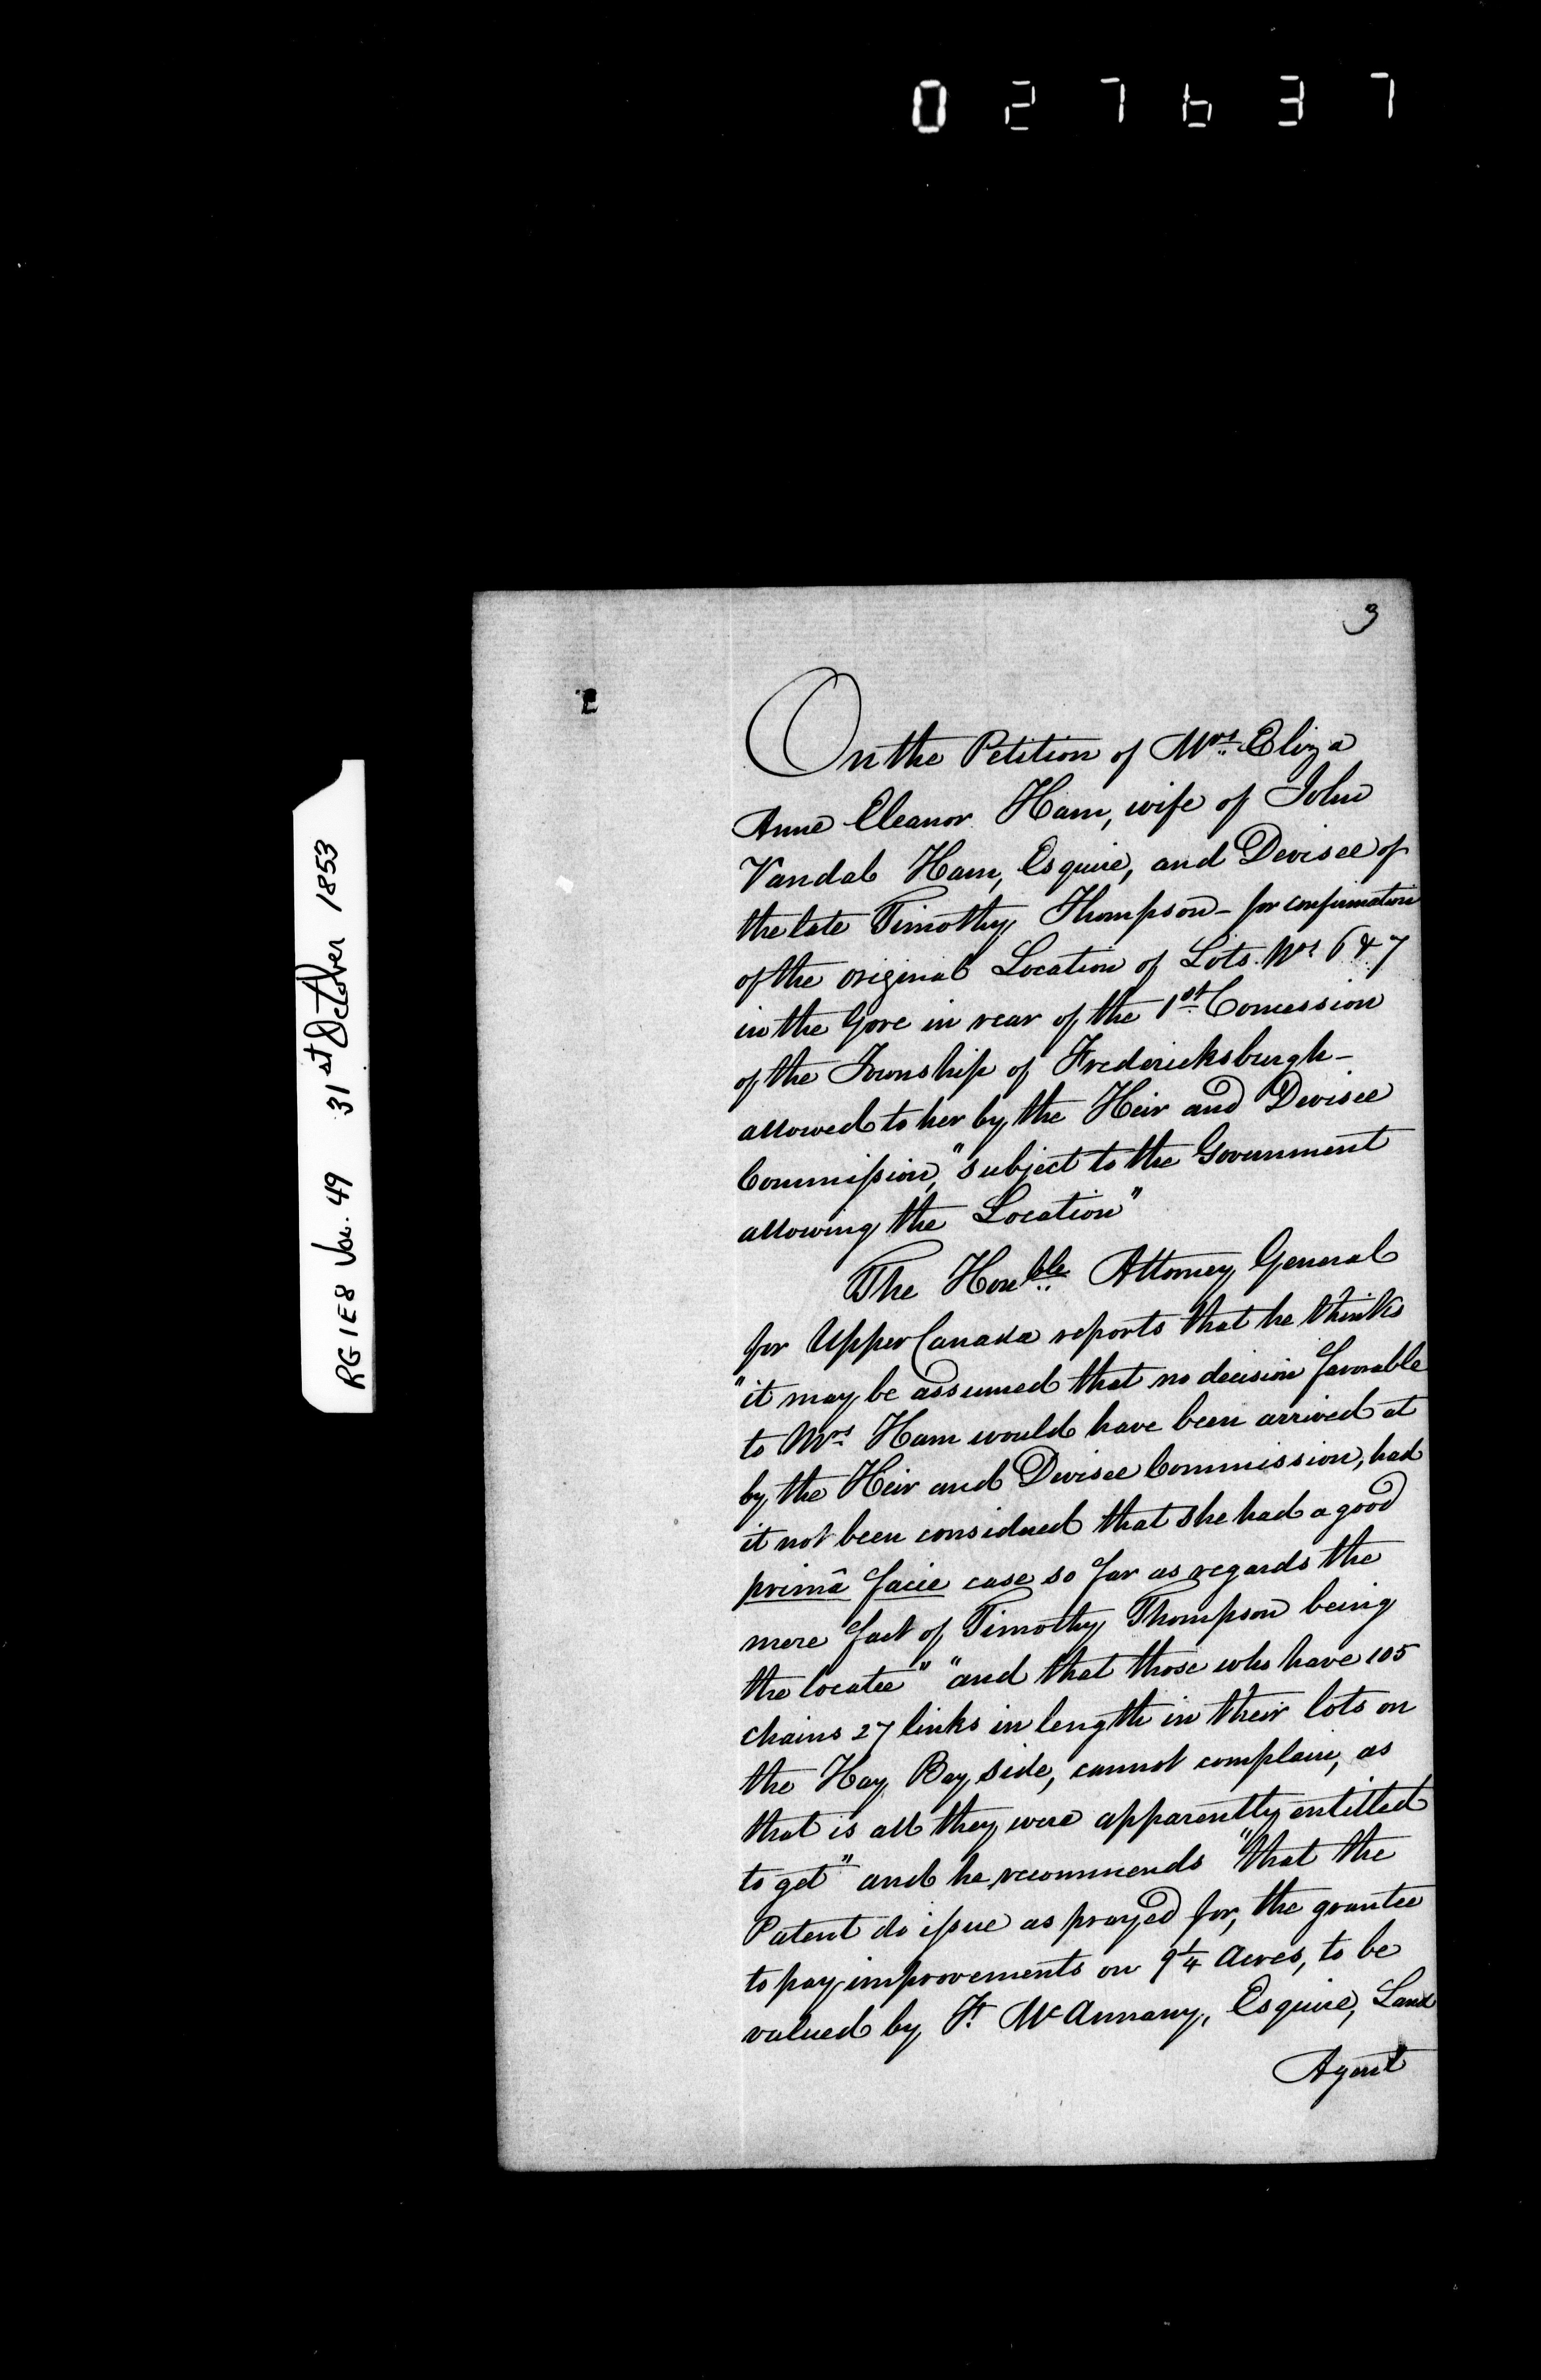 027637
RG 1 E8 Vol. 49 31st October 1853
3
On the Petition of Mrs. Eliza
Anne Eleanor Ham, wife of John
Vandal Ham, Esquire, and Devisee of
the late Timothy Thompson - for confirmation
of the original Location of Lots Nos 6 & 7
in the Gore in rear of the 1st Concession
of the Township of Fredericksburgh -
allowed to her by the Heir and Devisee
Commission, "subject to the Government
allowing the Location"
The Honble. Attorney General
for Upper Canada reports that he thinks
"it may be assumed that no decision favorable
to Mrs Ham would have been arrived at
by the Heir and Devisee Commission, had
it not been considered that she had a good
primâ facie case so far as regards the
mere fact of Timothy Thompson being
the locatee" "and that those who have 105
chains 27 links in length in their lots on
the Hay Bay side, cannot complain, as
that is all they were apparently entitled
to get" and he recommends "that the
Patent do issue as prayed for, the grantee
to pay improvements on 9 1/4 Acres, to be
valued by F. McAnnany, Esquire, Land
Agent